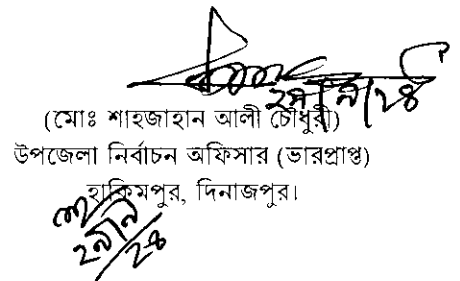 (মোঃ শাহজাহান আলী চৌধুরী)
উপজেলা নির্বাচন অফিসার (ভারপ্রাপ্ত)
হাকিমপুর, দিনাজপুর।